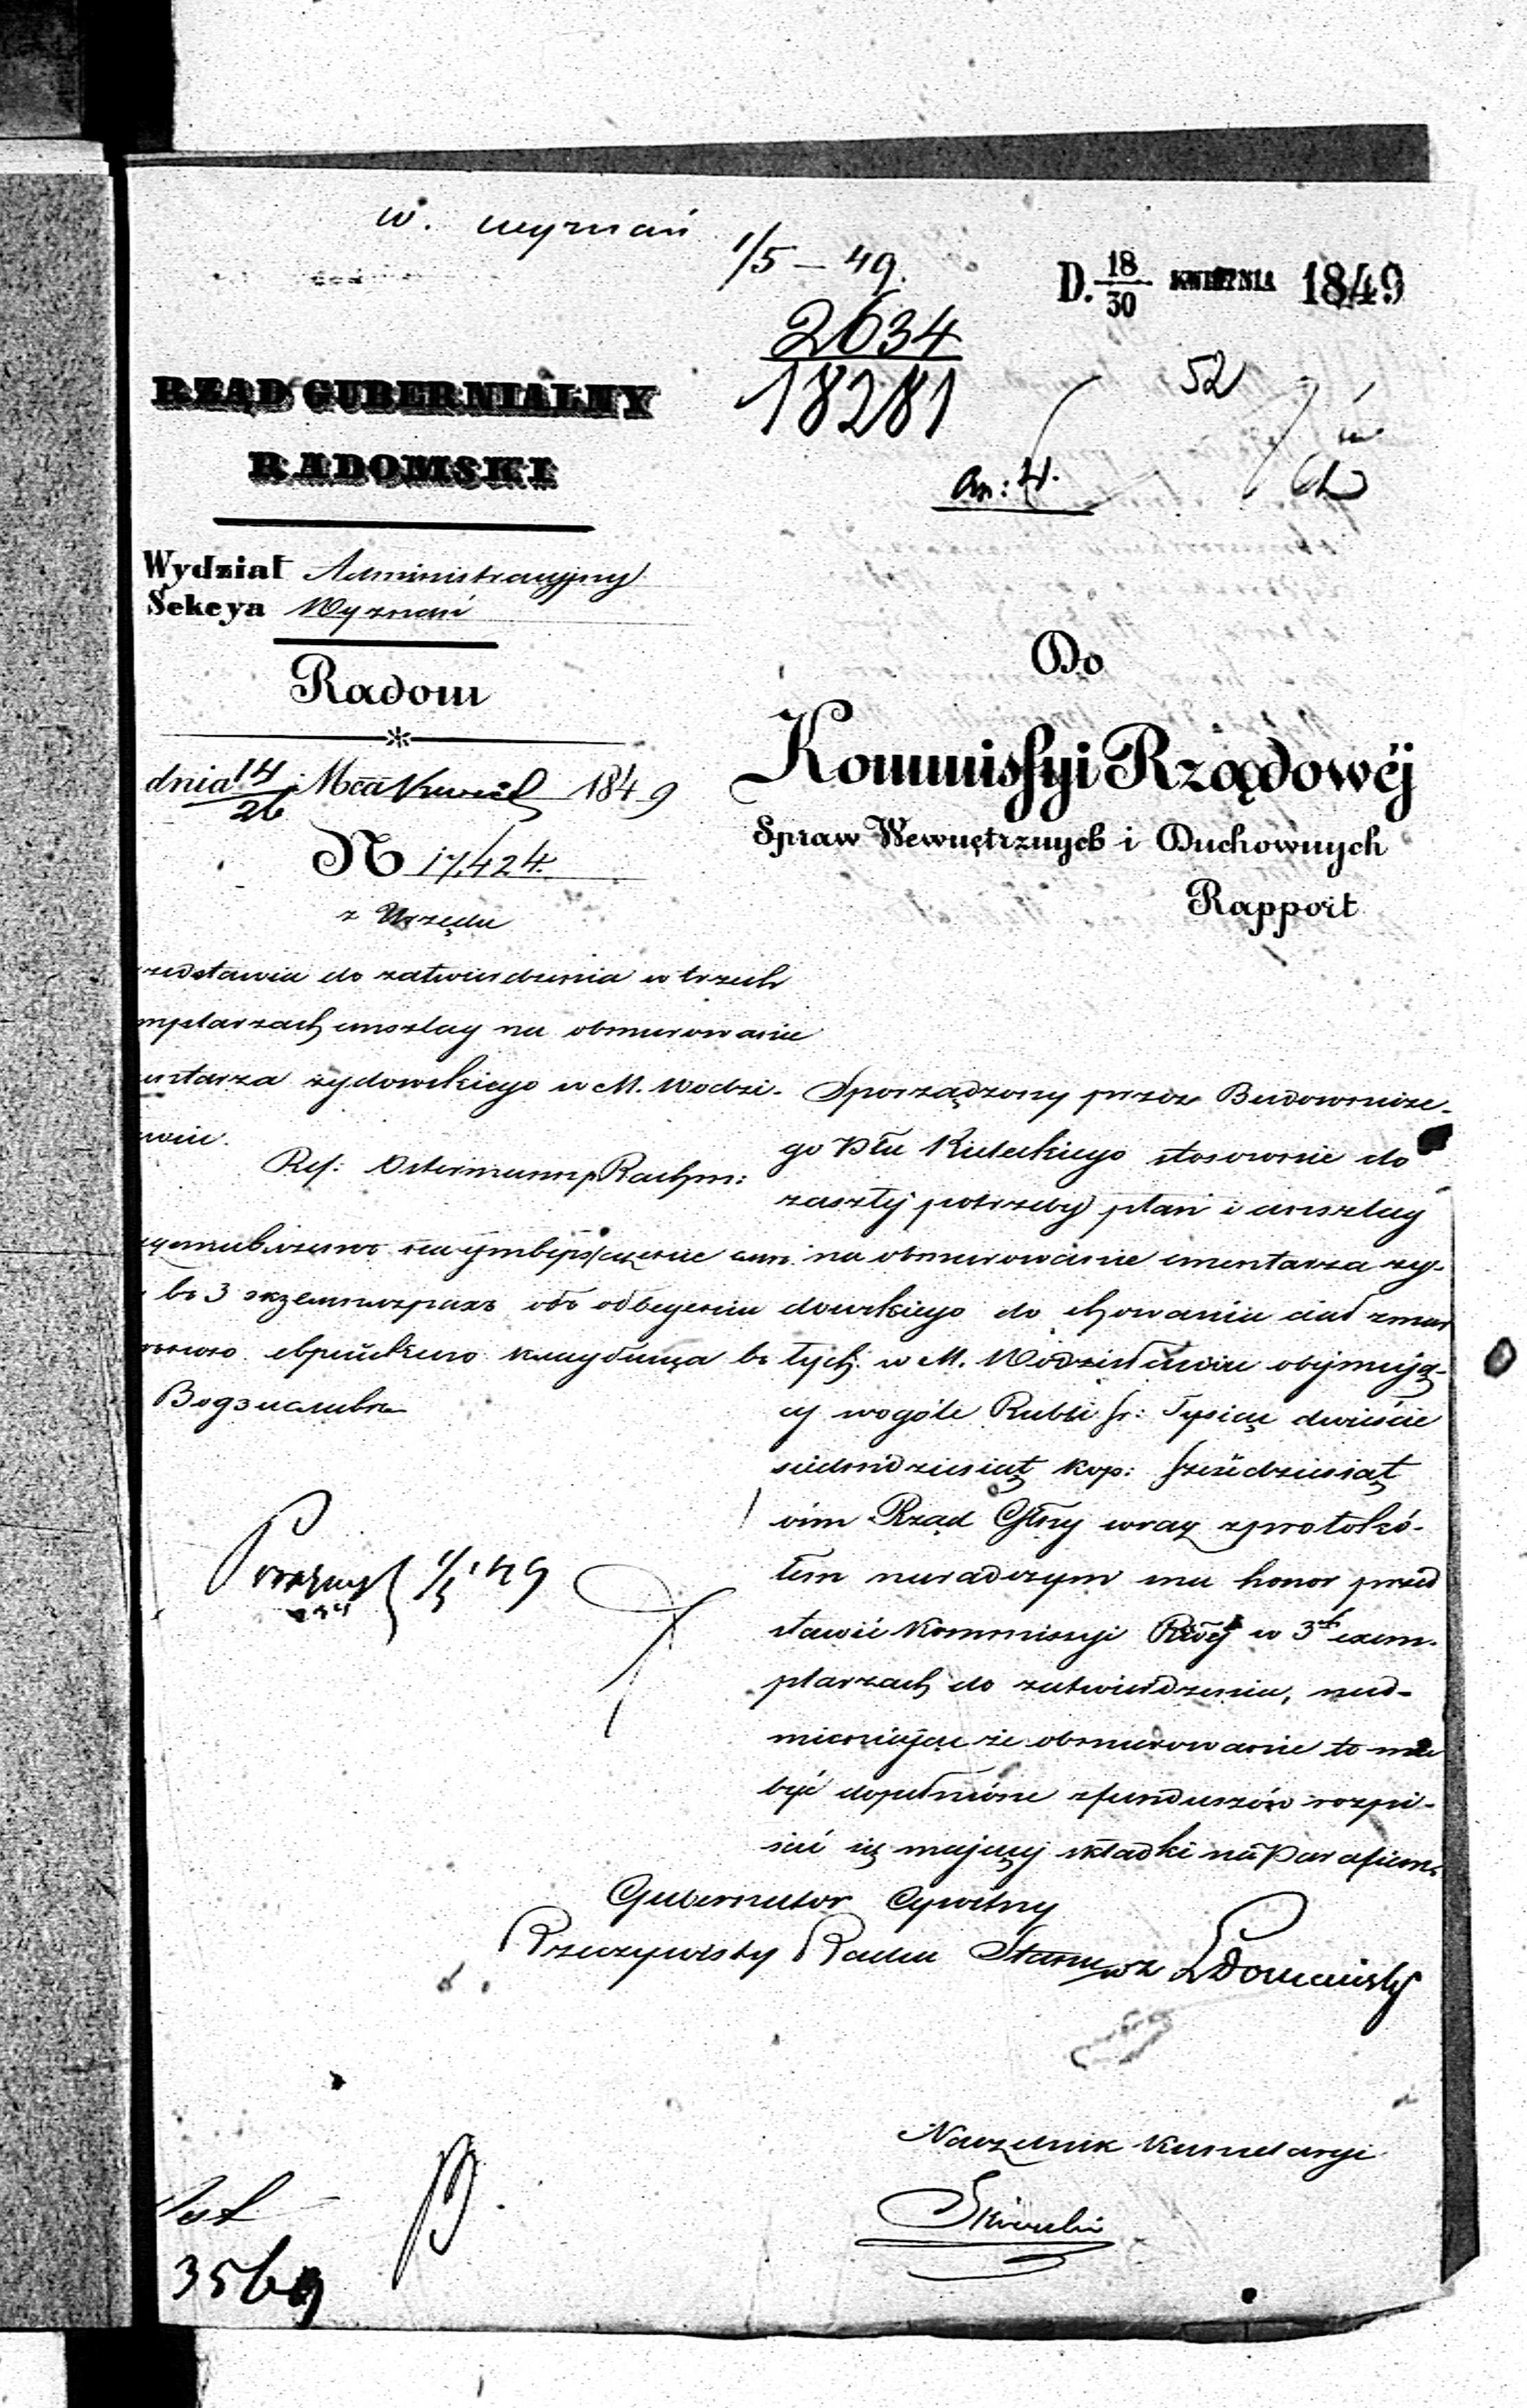 w. wyznań
1/5 – 49.
D. 18/30 KWIETNIA 1849
2634
18281
52
RZĄD GUBERNIALNY
RADOMSKI
Wydział Administracyjny
Sekcya Wyznań
Radom
dnia 14/26 Mca Kwiet 1849
N 17,424.
z Urzędu
Do
Kommissyi Rządowéj
Spraw Wewnętrznych i Duchownych
Rapport
rzedstawia do zatwierdzenia w trzech
mplarzach anszlag na obmurowanie
entarza żydowskiego w M. Wodzi-
wiu.
Ref:
въ 3 экземплярахъ объ
еврейскаго кладбища въ
Водзиславѣ
Sporządzony przez Budownicze-
go Pttu Kieleckiego stosownie do
zaszłéj potrzeby plan i anszlag
na obmurowanie cmentarza ży-
dowskiego do chowania ciał zmar
łych w M. Wodzisławiu obejmują-
cy wogóle Rubli sr: Tysiąc dwieście
siedmdziesiąt kop: sześćdziesiąt
ośm Rząd Glny wraz z protokó-
łem naradczym ma honor przed
stawić Kommissyi Rwéj w 3ch exem-
plarzach do zatwierdzenia, nad-
mieniając że obmurowanie to ma
być dopełnione z funduszów rozpi-
sać się mającéj składki na Parafian.
Gubernator Cywilny
Rzeczywisty Radca Stanu
Naczelnik Kancelaryi
1/5 49
3569